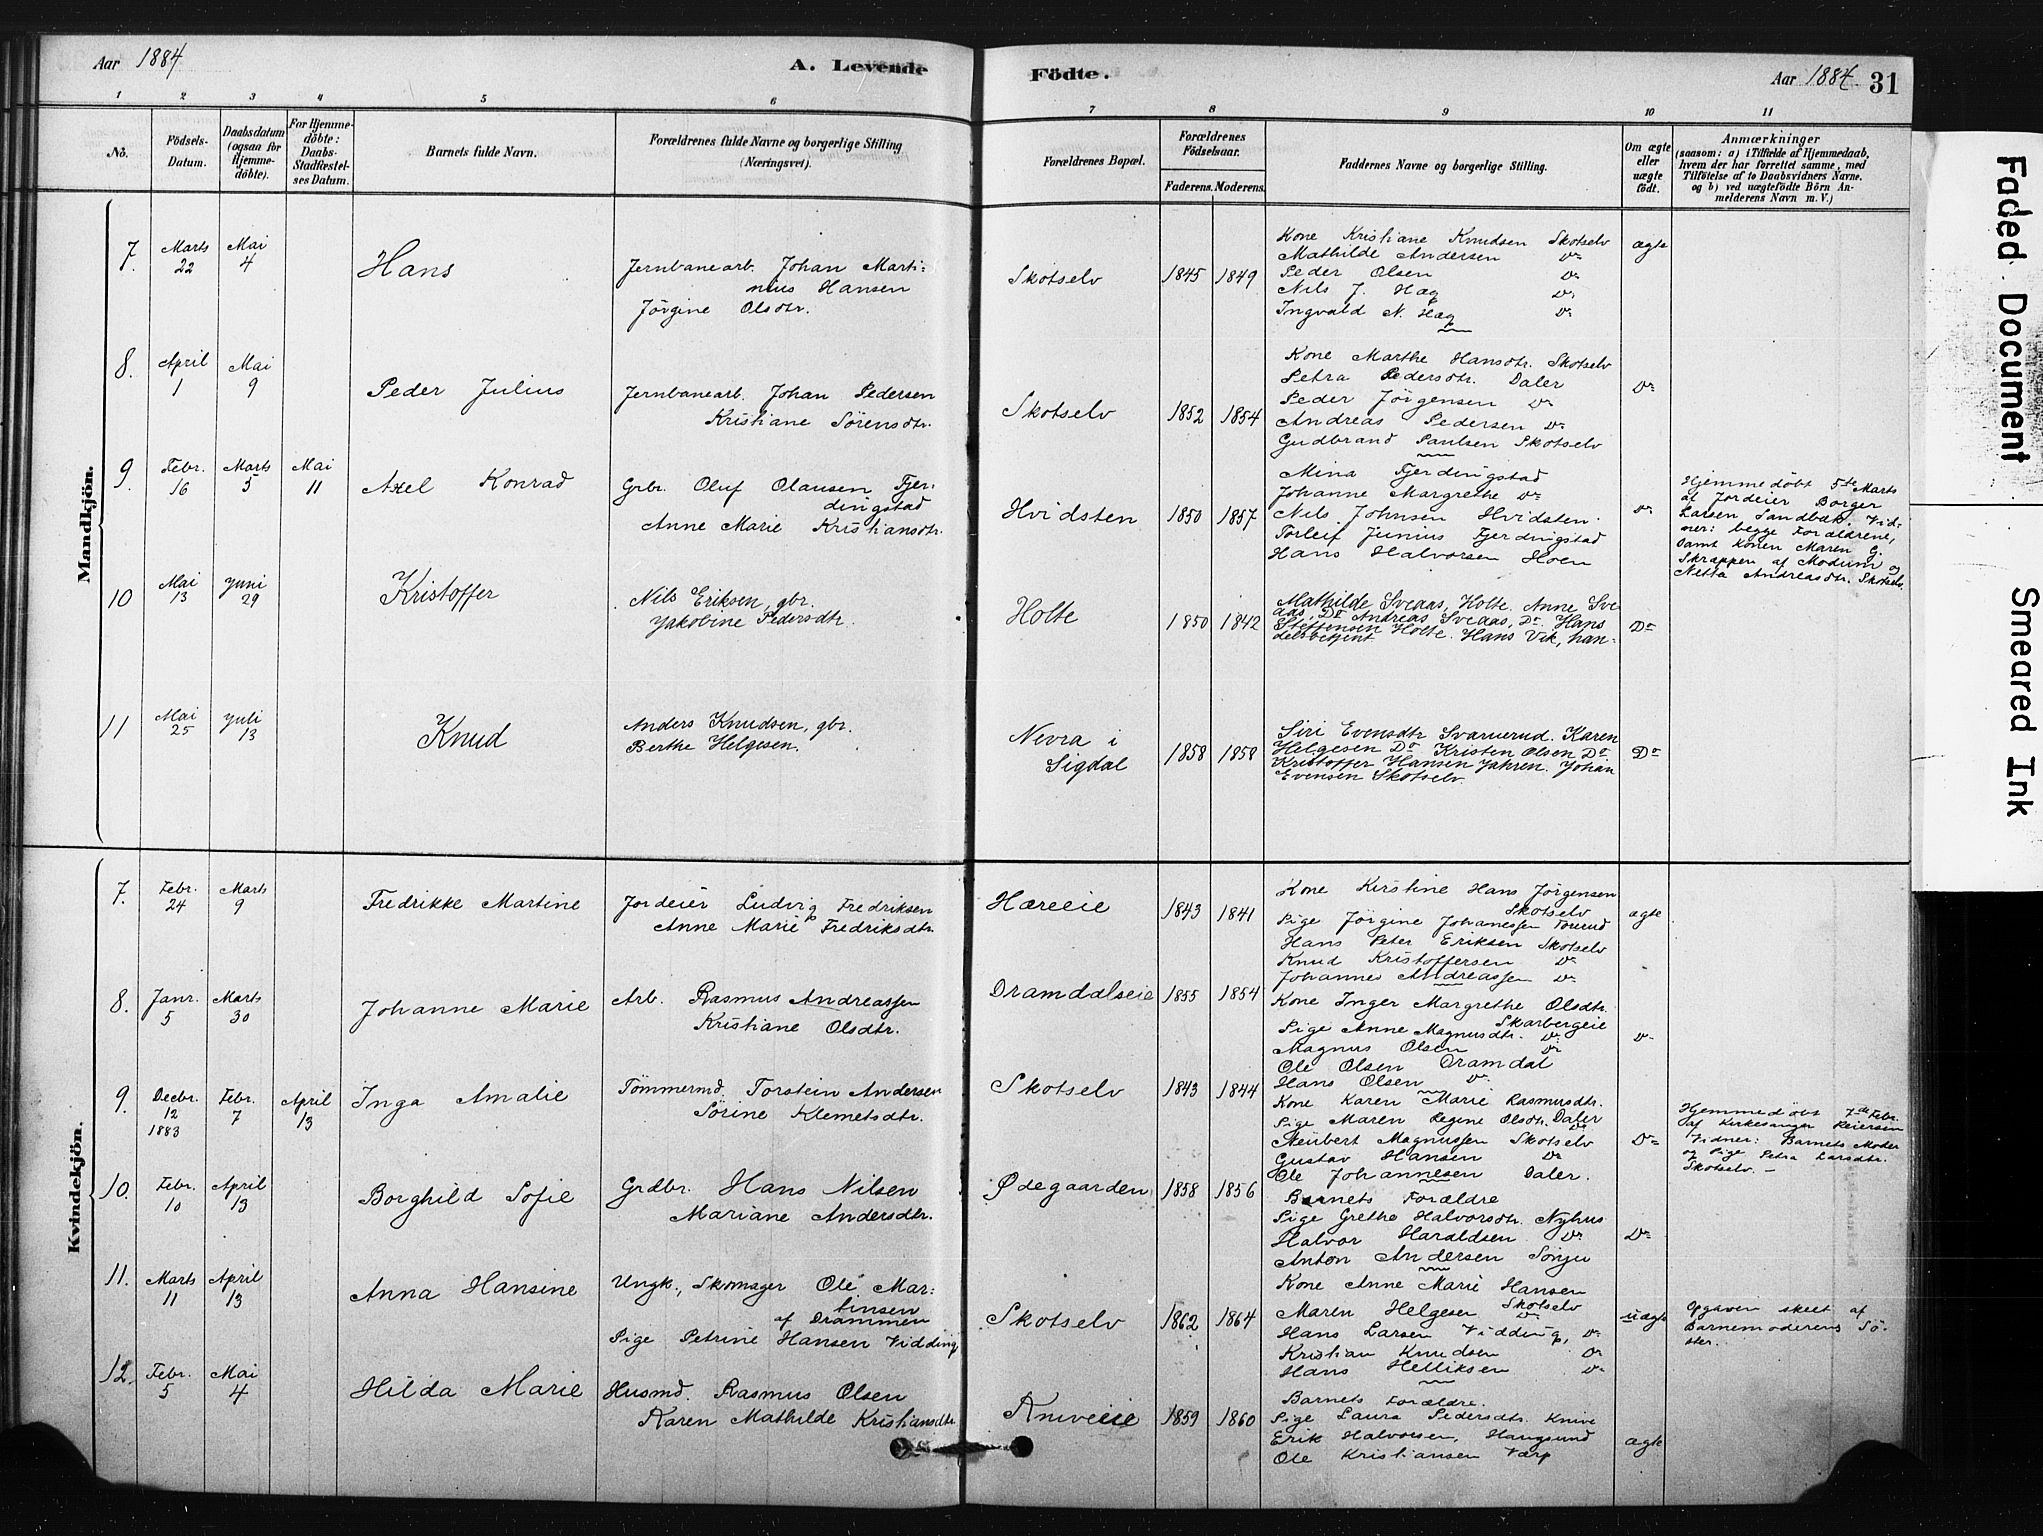 Aar 1884
A. Levende
Födte.
Aar 1884
31
1 2 3 4 5 6 7 8 9 10 11
No.
Födsels-
Datum.
Daabsdatum
(ogsaa for
Hjemme-
döbte).
For Hjemme-
döbte:
Daabs-
Stadfæstel-
ses Datum.
Barnets fulde Navn.
Forældrenes fulde Navne og borgerlige Stilling
(Næringsvei).
Forældrenes Bopæl.
Forældrenes
Födselsaar.
Faderens. Moderens.
Faddernes Navne og borgerlige Stilling.
Om ægte
eller
uægte
födt.
Anmærkninger
(saasom: a) i Tilfælde af Hjemmedaab,
hvem der har forrettet samme, med
Tilföielse af to Daabsvidners Navne.
og b) ved uægtefödte Börn An-
melderens Navn m. V.)
Mandkjön.
7.
Marts
22
Mai
4
Hans
Jernbanearb. Johan Marti-
nius Hansen
Jörgine Olsdtr.
Skotselv
1845
1849
Kone Kristiane Knudsen Skotselv
Mathilde Andersen Do
Peder Olsen Do
Nils J. Hæg Do
Ingvald N. Hæg Do
ægte
8.
April
1
Mai
9
Peder Julius
Jernbanearb. Johan Pedersen
Kristiane Sörensdtr.
Skotselv
1852
1854
Kone Marthe Hansdtr. Skotselv
Petra Pedersdtr. Daler
Peder Jörgensen Do
Andreas Pedersen Do
Gudbrand Paulsen Skotselv
Do
9.
Febr.
16
Marts
5
Mai
11
Axel Konrad
Grbr. Oluf Olausen Fjer-
dingstad
Anne Marie Kristiansdtr.
Hvidsten
1850
1857
Mina Fjerdingstad
Johanne Margrethe Do
Nils Johnsen Hvidsten.
Torleif Junius Fjerdingstad
Hans Halvorsen Hoen
Do
Hjemmedöbt 5te Marts
af Jordeier Borger
Larsen Sandbæk. Vid-
ner: begge Forældrene,
samt Konen Maren G.
Skrappen af Modum og
Netta Andreasdtr. Skotselv.
10
Mai
13
Juni
29
Kristoffer
Nils Eriksen, gbr.
Jakobine Pedersdtr.
Holte
1850
1842
Mathilde Sveaas, Holte. Anne Sve
aas, Do Andreas Sveaas, Do. Hans
Steffensen Holte. Hans Vik, han-
delsbetjent.
Do
11
Mai
25
Juli
13
Knud
Anders Knudsen, gbr.
Berthe Helgesen.
Nevra i
Sigdal
1858
1858
Siri Evensdtr Svarverud. Karen
Helgesen Do Kristen Olsen Do
Kristoffer Hansen Jahren. Johan
Evensen Skotselv.
Do
Kvindekjön.
7.
Febr.
24
Marts
9
Fredrikke Martine
Jordeier Ludvig Fredriksen
Anne Marie Fredriksdtr.
Hæreeie
1843
1841
Kone Kirstine Hans Jörgensen
Skotselv
Pige Jörgine Johanessen
Hans Peter Eriksen Skotselv
Knud Kristoffersen Do
Johannes Andreassen Do
ægte
8.
Janr.
5
Marts
30
Johanne Marie
Arb. Rasmus Andreassen
Kristiane Olsdtr.
Dramdalseie
1855
1854
Kone Inger Margrethe Olsdtr.
Skarbergeie
Pige Anne Magnusdtr. Do
Magnus Olsen Do
Ole Olsen Dramdal
Hans Olsen Do
Do
9.
Decbr.
12
1883
Febr.
7
April
13
Inga Amalie
Tömmermd. Torstein Andersen
Sörine Klemetsdtr.
Skotselv
1843
1844
Kone Karen Marie Rasmusdtr.
Pige Maren Regine Olsdtr. Daler
Magnussen Skotselv
Gustav Hansen Do
Ole Johannesen Daler.
Do
Hjemmedöbt 7de Febr.
af Kirkesanger Reiersen
Vidner: Barnets Moder
og Pige Petra Larsdtr.
Skotselv.
10.
Febr.
10
April
13
Borghild Sofie
Grdbr. Hans Nilsen
Mariane Andersdtr.
Ødegaarden
1858
1856
Barnets Forældre
Pige Grethe Halvorsdtr. Nyhus
Halvor Haraldsen Do
Anton Andersen Sönju
Do
11.
Marts
11
April
13
Anna Hansine
Ungk., Skomager Ole Mar-
tinsen
af Drammen
Pige Petrine Hansen Vidding
Skotselv
1862
1864
Kone Anne Marie Hansen
Skotselv
Maren Helgesen Do
Hans Larsen Vidding, Do
Kristian Knudsen Do
Hans Helliksen Do
uægte
Opgaven skeet af
Barnemoderens Sö-
ster.
12.
Febr.
5
Mai
4
Hilda Marie
Husmd. Rasmus Olsen
Karen Mathilde Kristiansdtr
Kniveeie
1859
1860
Barnets Forældre.
Pige Laura Pedersdtr. Knive
Erik Halvorsen, Haugsund
Ole Kristiansen Værp
ægte
Faded Document
Smeared Ink